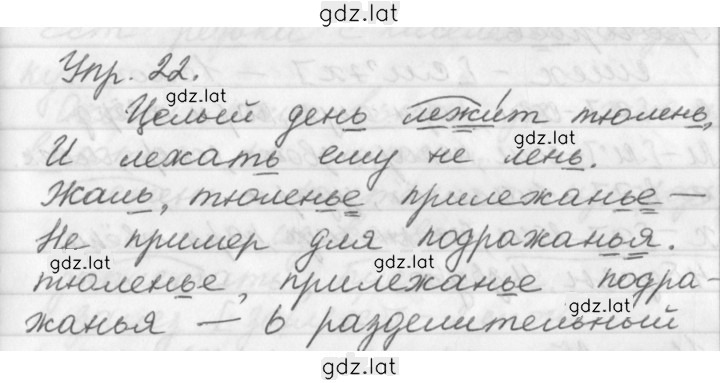 gdz.lat
Упр. 22.
gdz.lat
Целый день лежит тюлень,
gdz.lat
И лежать ему не лень.
Жаль, тюленье прилежанье —
Не пример для подражанья.
gdz.lat gdz.lat
тюленье, прилежанье подра-
gdz.lat
жанья — ь разделительный
gdz.lat